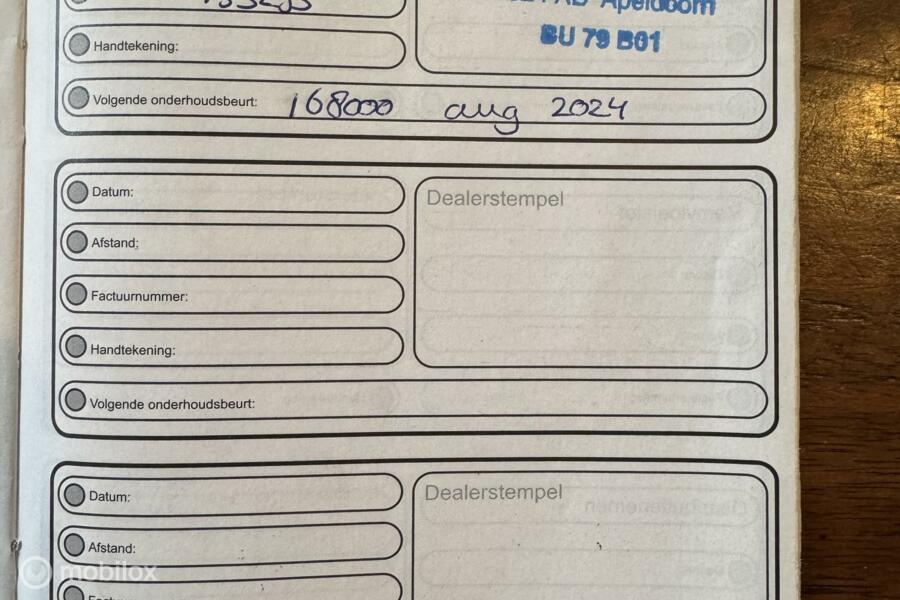 Apeldoorn
BU 79 B01
Handtekening:
Volgende onderhoudsbeurt: 168000 aug 2024
Datum:
Dealerstempel
Afstand:
Factuurnummer:
Handtekening:
Volgende onderhoudsbeurt:
Datum:
Dealerstempel
Afstand:
mobilox